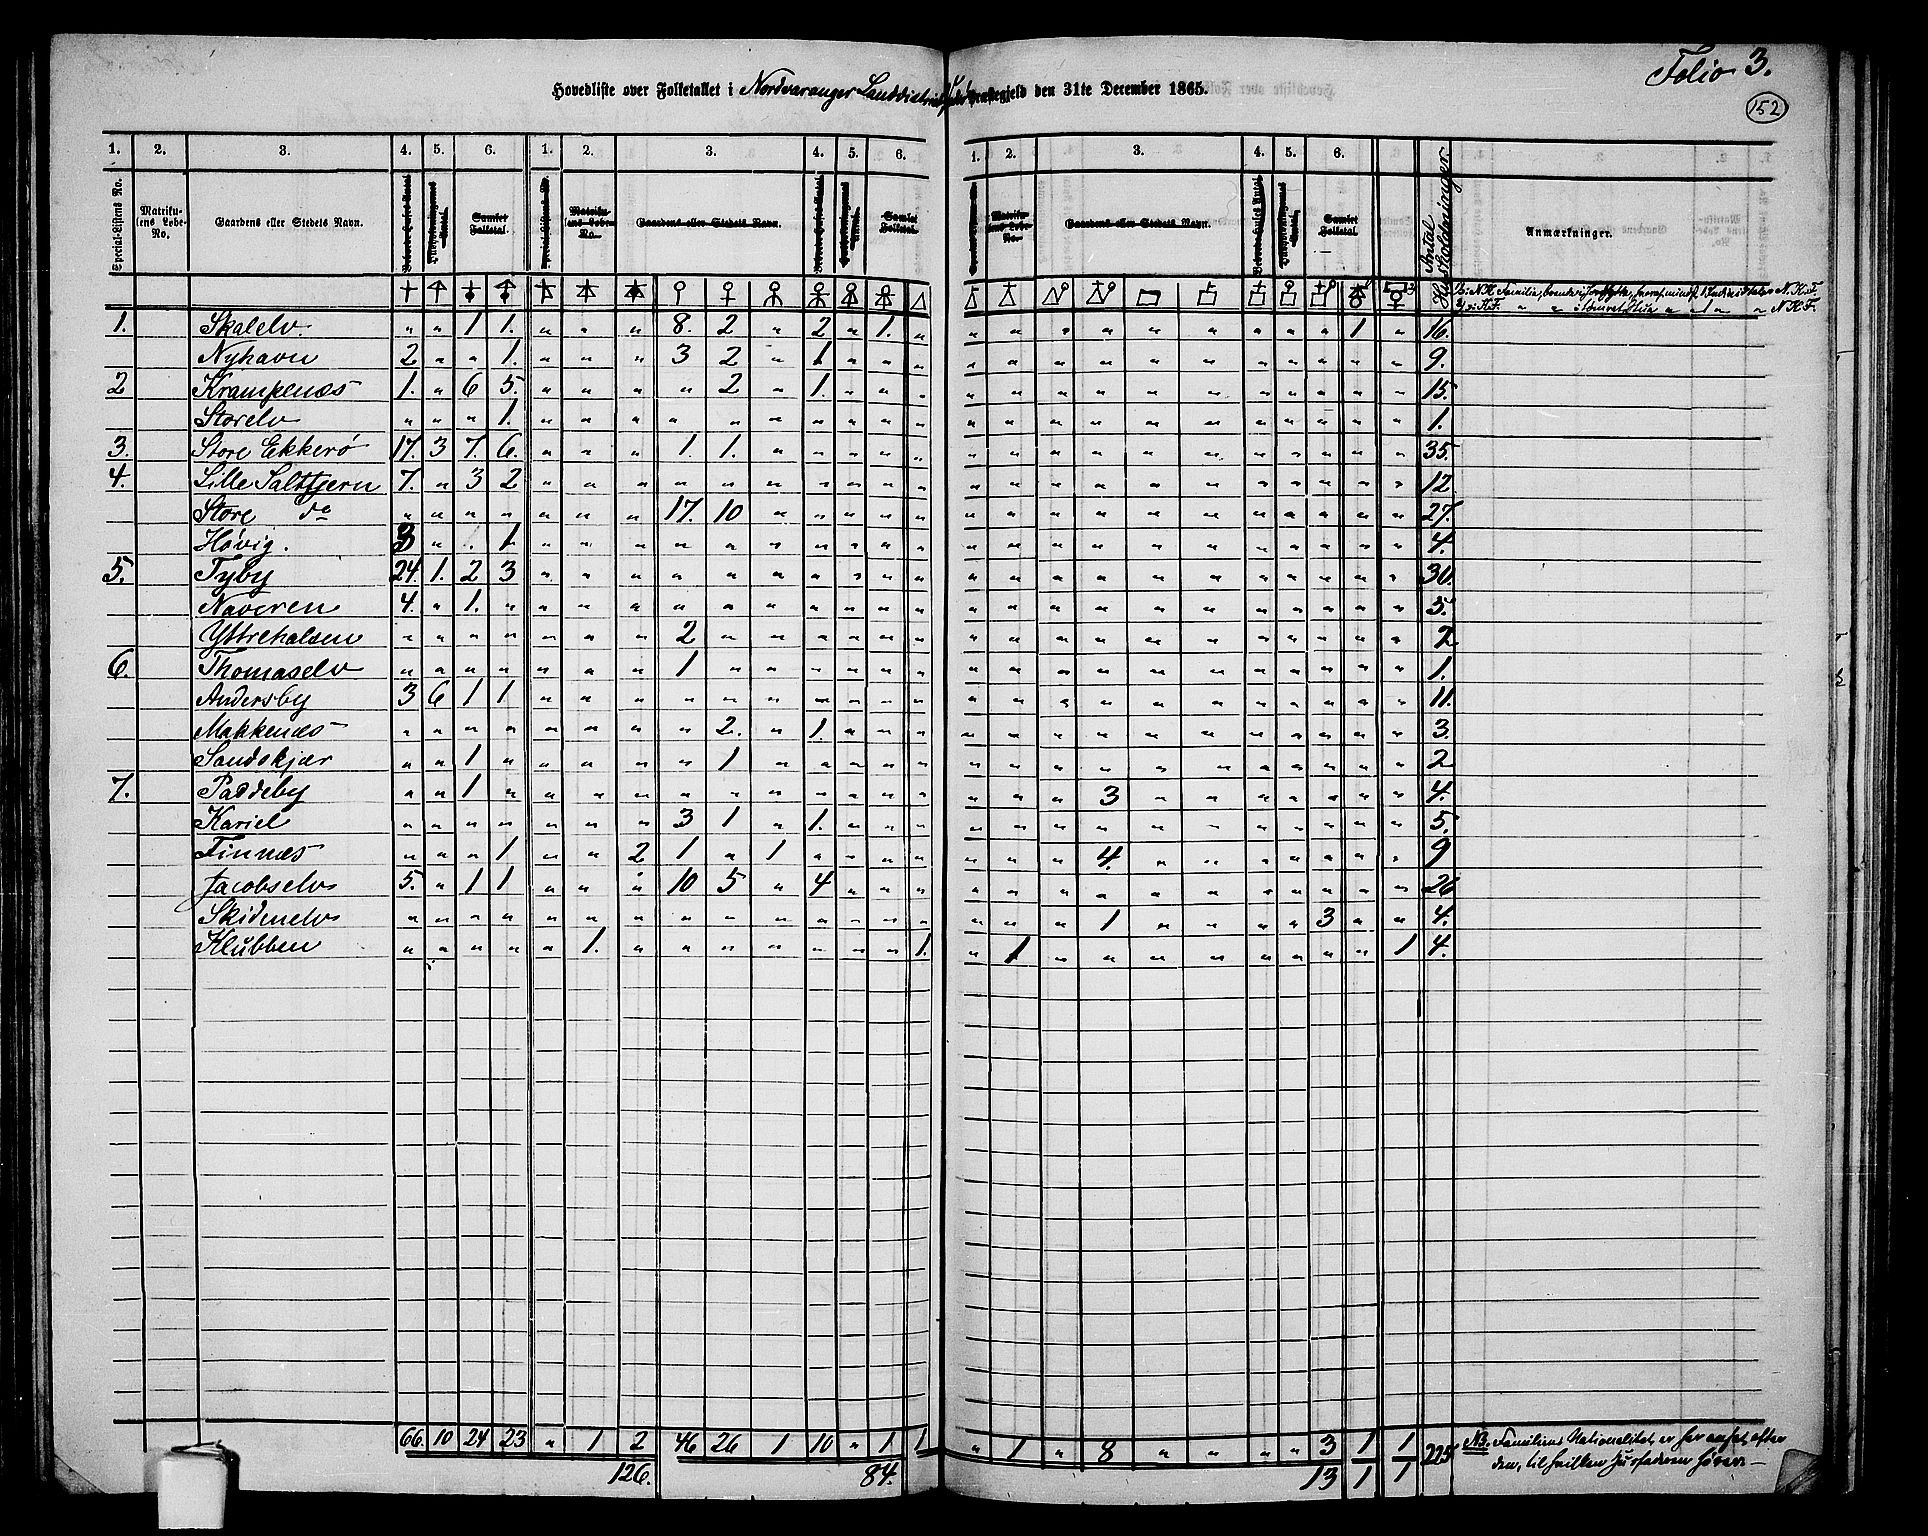 Folio 3.
152
Hovedliste over Folketallet i Nordvaranger Landdistrikt Præstegjeld den 31te December 1865.
1. 2. 3. 4. 5. 6. 1. 2. 3. 4. 5. 6. 1. 2. 3. 4. 5. 6.
Special-Listens No. Matrikulens Løbe-No. Gaardens eller Stedets Navn. Beboede Huses Antal Huusholdningernes Antal. Samlet Folketal. Matrikulens Løbe-No. Gaardens eller Stedets Navn. Samlet Folketal. Matrikulens Løbe-No. Gaardens eller Stedets Navn. Beboede Huses Antal Huusholdningernes Antal. Samlet Folketal. Antal Husholdninger Anmærkninger.
1. Skalelv. " " 1 1. " " " 8. 2 " 2 " 1. " " " " " " " " " " 1 " 16.
Nyhavn 2 " " 1. " " " 3 2 " 1. " " " " " " " " " " " " " " 9.
2 Krampenæs 1. " 6 5. " " " " 2 " 1. " " " " " " " " " " " " " " 15.
Storelv " " " 1. " " " " " " " " " " " " " " " " " " " " " 1.
3. Store Ekkerø 17. 3 7. 6. " " " 1. 1. " " " " " " " " " " " " " " " " 35.
4. Lille Saltfjern 7. " 3 2 " " " " " " " " " " " " " " " " " " " " " 12
Store do " " " " " " " 17. 10 " " " " " " " " " " " " " " " " 27.
Høvig. 3 " . 1 " " " " " " " " " " " " " " " " " " " " " 4.
5. Tyby 24. 1. 2 3 " " " " " " " " " " " " " " " " " " " " " 30.
Naveren 4. " 1. " " " " " " " " " " " " " " " " " " " " " " 5.
Yttrehalsen " " " " " " " 2 " " " " " " " " " " " " " " " " " 2
6. Thomaselv " " " " " " " 1 " " " " " " " " " " " " " " " " " 1.
Andersby 3 6 1 1 " " " " " " " " " " " " " " " " " " " " " 11.
Makkenæs " " " " " " " " 2. " 1. " " " " " " " " " " " " " " 3.
Sandskjær " " 1 " " " " " 1 " " " " " " " " " " " " " " " " 2
7. Paddeby " " 1 " " " " " " " " " " " " " " 3 " " " " " " " 4.
Kariel " " " " " " " 3 1 " 1. " " " " " " " " " " " " " " 5.
Finnæs " " " 1 " " 2 1 " 1 " " " " " " " 4. " " " " " " " 9
Jacobselv 5. " 1 1 " " " 10 5 " 4 " " " " " " " " " " " " " " 26
Skidenelv " " " " " " " " " " " " " " " " " 1 " " " " 3 " " 4.
Klubben " " " " " 1. " " " " " " " 1. " 1 " " " " " " " " 1 4.
66. 10 24 23 " 1 2 46 26 1 10 " 1 1 " 1 " 8 " " " " 3 1 1 225
126. 84. 13 1 1
NB. Familiens Nationalitet er her ansat efter
den, til hvilken Husfaderen hører —